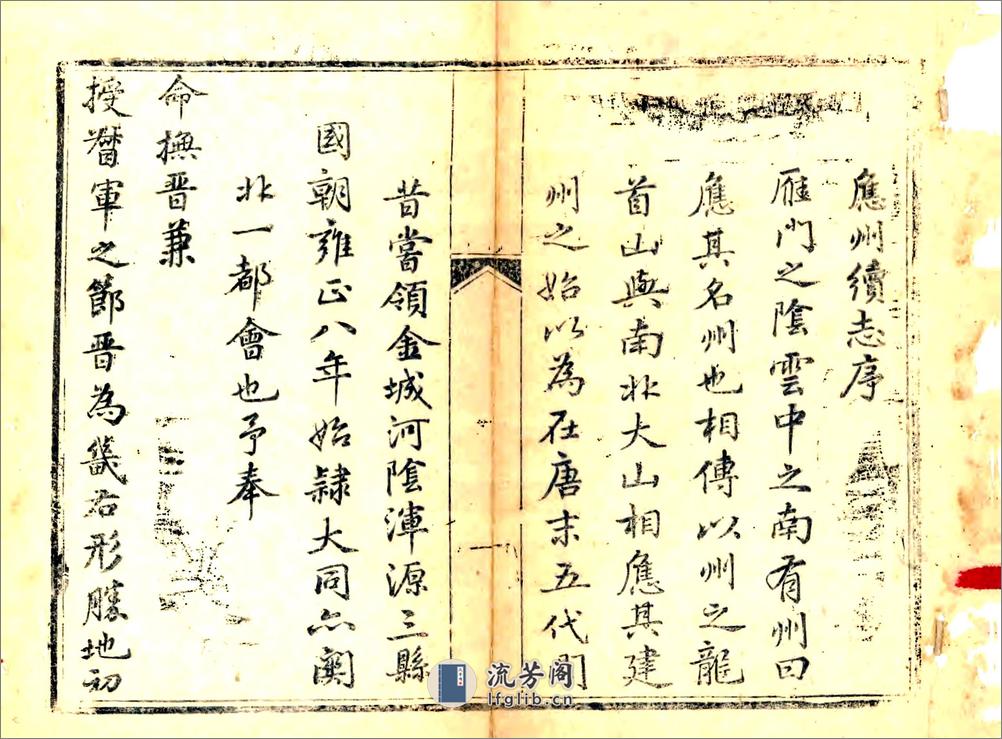 應州續志序
雁門之陰雲中之南有州曰
應其名州也相傳以州之龍
首山與南北大山相應其建
州之始以為在唐末五代間
昔嘗領金城河陰渾源三縣
國朝雍正八年始隸大同亦奧
北一都會也予奉
命撫晋兼
授督軍之節晋為畿右形勝地初
一
流芳阁
lfglib.cn